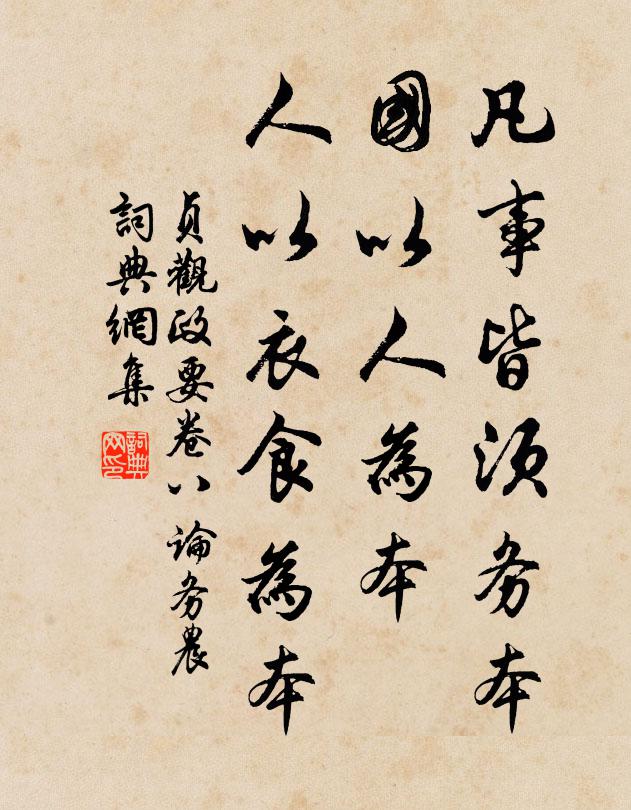 凡事皆須务本
國以人為本
人以衣食為本
貞觀政要卷八 論务農
詞典網集
詞典网印